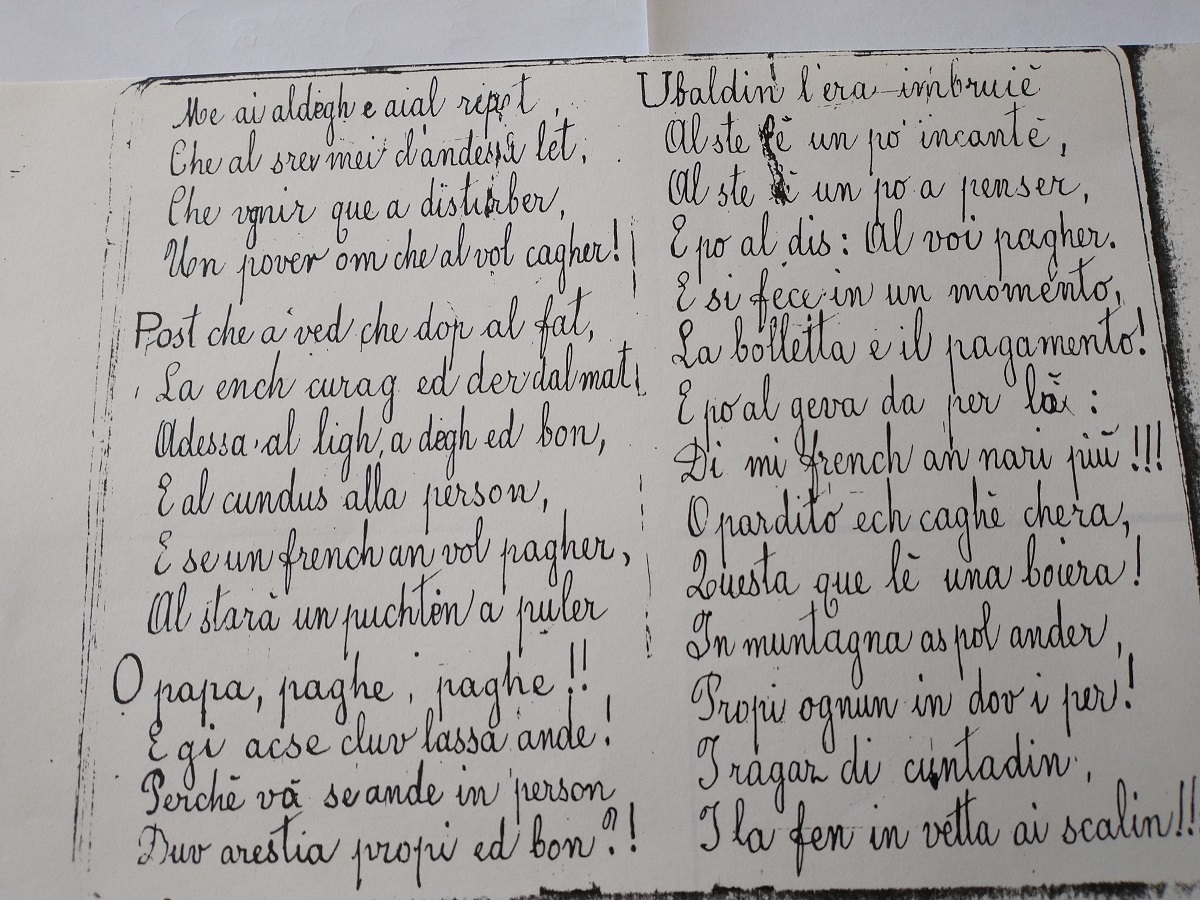 Me ai aldègh e aial ripet,
Che al srev mei d'andessù let,
Che vgnir que a disturber,
Un pover om che al vol cagher!
Post che a ved che dop al fat,
La ench curag ed der dal mat!
Adessa al ligh, a dègh ed bon,
E al cundus alla person,
E se un french an vol pagher,
Al starà un puchtèn a puler
O papa, paghe, paghe!!
E gi acse cluv lassa ande!
Perchè và se ande in person
Duv arestia propi ed bon?!
Ubaldin l'era imbruiè
Al ste lè un po' incantè,
Al ste lè un po a penser,
E po al dis: Al voi pagher.
E si fece in un momento,
La bolletta e il pagamento!
E po al geva da per là:
Di mi french an nari più!!!
O pardito ech caghè chera,
Questa que lè una boiera!
In muntagna as pol ander,
Propi ognun in dov i per!
I ragaz di cuntadin,
I la fen in vetta ai scalin!!